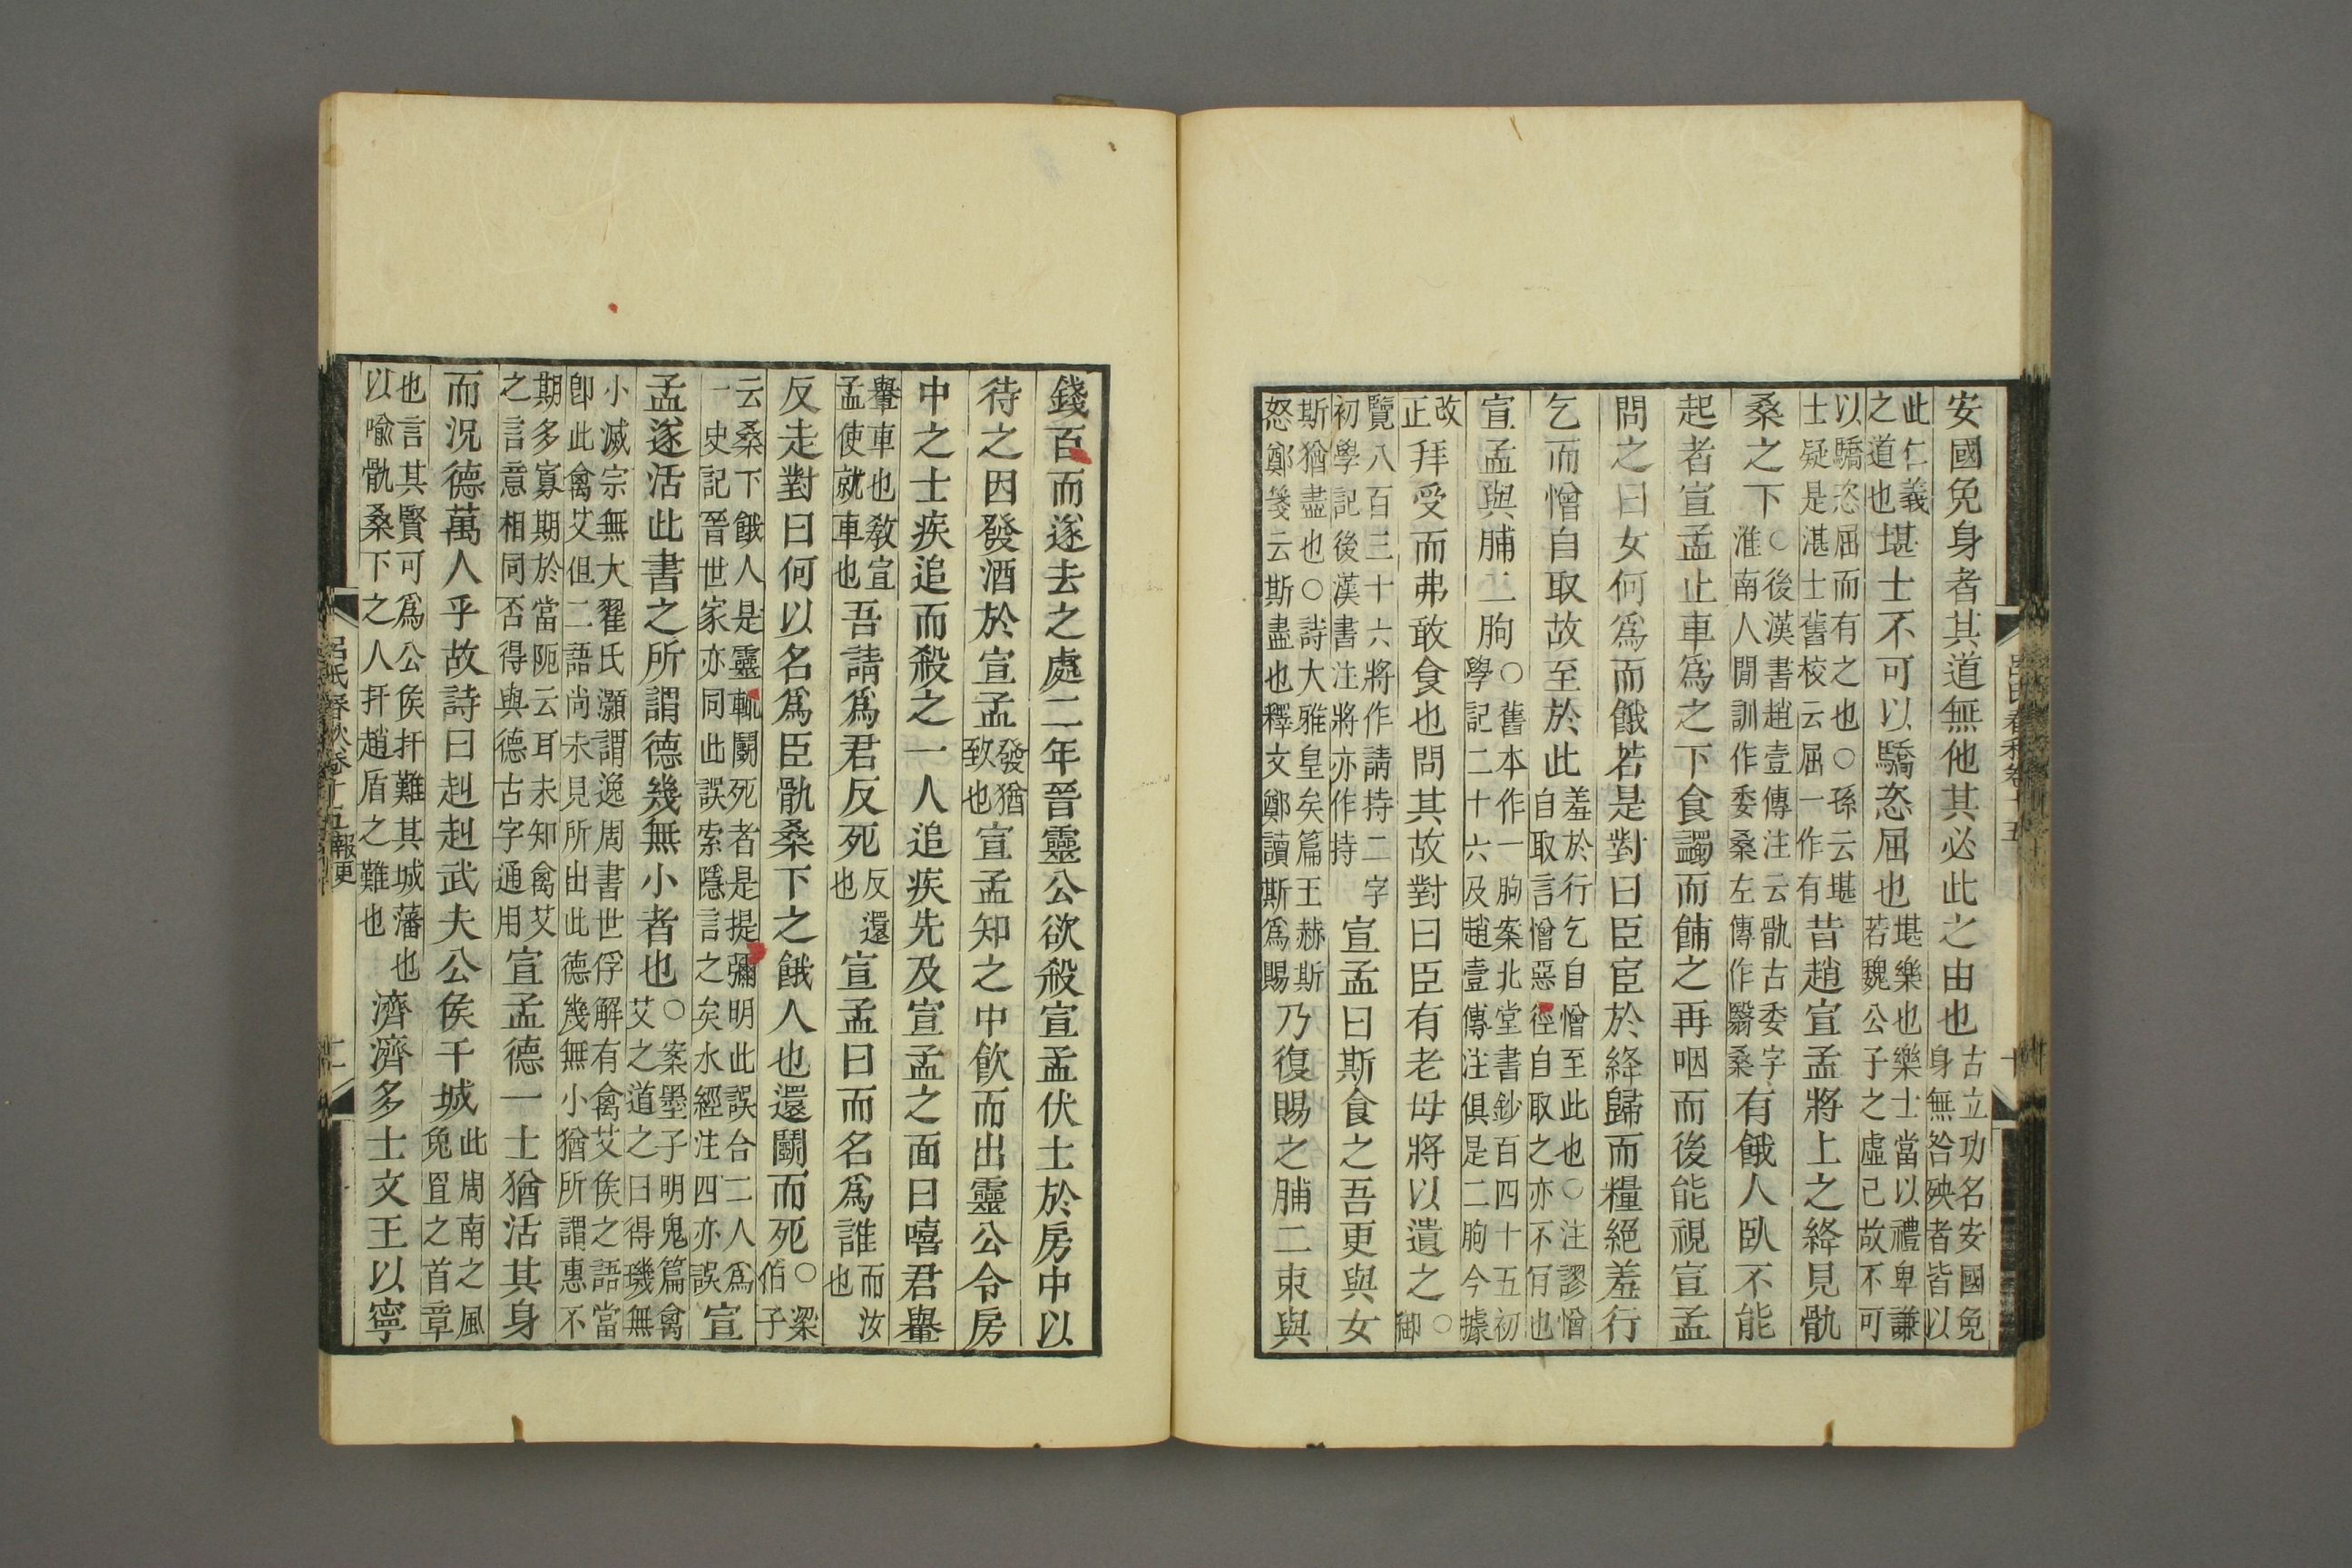 安國免身者其道無他其必此之由也古立功名安國免身無咎殃者皆以
此仁義之道也堪士不可以驕恣屈也堪樂也樂士當以禮卑謙若魏公子之虛己故不可
以驕恣屈而有之也○孫云堪士疑是湛士舊校云屈一作有昔趙宣孟將上之絳見骫
桑之下○後漢書趙壹傳注云骫古委字淮南人閒訓作委桑左傳作翳桑有餓人臥不能
起者宣孟止車爲之下食蠲而餔之再咽而後能視宣孟
問之曰女何爲而餓若是對曰臣宦於絳歸而糧絕羞行
乞而憎自取故至於此羞於行乞自憎至此也○注謬憎自取言憎惡徑自取之亦不肎也
宣孟與脯二朐○舊本作一朐案北堂書鈔百四十五初學記二十六及趙壹傳注俱是二朐今據
改正拜受而弗敢食也問其故對曰臣有老母將以遺之○御
覽八百三十六將作請持二字初學記後漢書注將亦作持宣孟曰斯食之吾更與女
斯猶盡也○詩大雅皇矣篇王赫斯怒鄭箋云斯盡也釋文鄭讀斯爲賜乃復賜之脯二束與
呂氏春秋卷十五
十
錢百而遂去之處二年晉靈公欲殺宣孟伏士於房中以
待之因發酒於宣孟發猶致也宣孟知之中飲而出靈公令房
中之士疾追而殺之一人追疾先及宣孟之面曰嘻君轝
轝車也敎宣孟使就車也吾請爲君反死反還也宣孟曰而名爲誰而汝也
反走對曰何以名爲臣骫桑下之餓人也還鬭而死○梁伯子
云桑下餓人是靈輒鬭死者是提彌明此誤合二人爲一史記晉世家亦同此誤索隱言之矣水經注四亦誤宣
孟遂活此書之所謂德幾無小者也○案墨子明鬼篇禽艾之道之曰得璣無
小滅宗無大翟氏灝謂逸周書世俘解有禽艾侯之語當卽此禽艾但二語尚未見所出此德幾無小猶所謂惠不
期多寡期於當阨云耳未知禽艾之言意相同否得與德古字通用宣孟德一士猶活其身
而況德萬人乎故詩曰赳赳武夫公侯干城此周南之風兔罝之首章
也言其賢可爲公侯扞難其城藩也以喻骫桑下之人扞趙盾之難也濟濟多士文王以寧
呂氏春秋卷十五 報更
十一